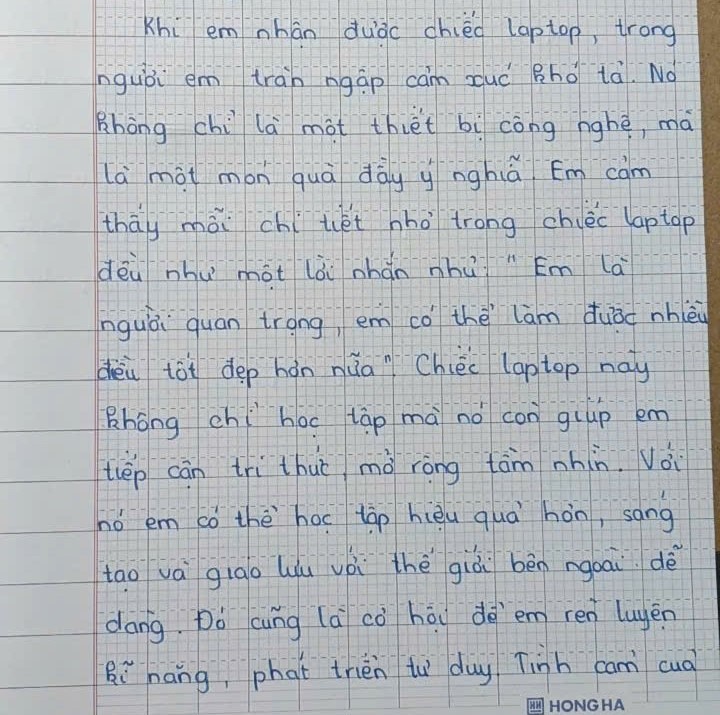 Khi em nhận được chiếc laptop, trong
người em tràn ngập cảm xúc khó tả. Nó
không chỉ là một thiết bị công nghệ, mà
là một món quà đầy ý nghĩa. Em cảm
thấy mỗi chi tiết nhỏ trong chiếc laptop
đều như một lời nhắn nhủ: "Em là
người quan trọng, em có thể làm được nhiều
điều tốt đẹp hơn nữa". Chiếc laptop này
không chỉ học tập mà nó còn giúp em
tiếp cận tri thức, mở rộng tầm nhìn. Với
nó em có thể học tập hiệu quả hơn, sáng
tạo và giao lưu với thế giới bên ngoài dễ
dàng. Đó cũng là cơ hội để em rèn luyện
kĩ năng, phát triển tư duy. Tình cảm của
HH HONG HA